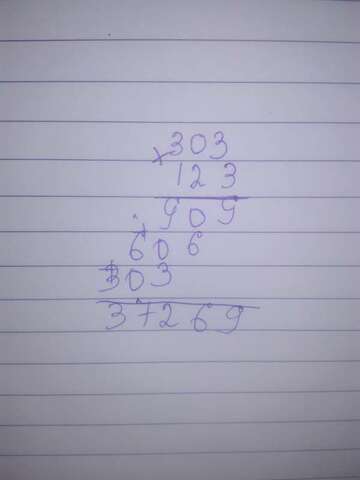 303
× 123
909
606
303
37269